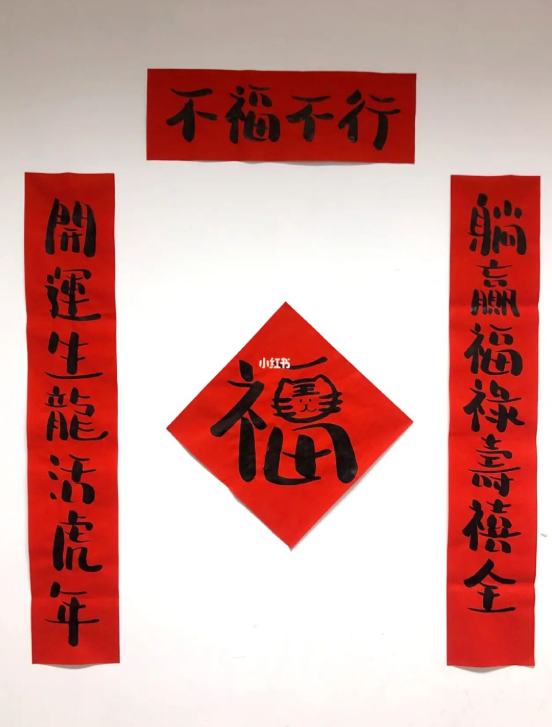 不福不行
開運生龍活虎年
躺贏福祿壽禧全
小红书
福